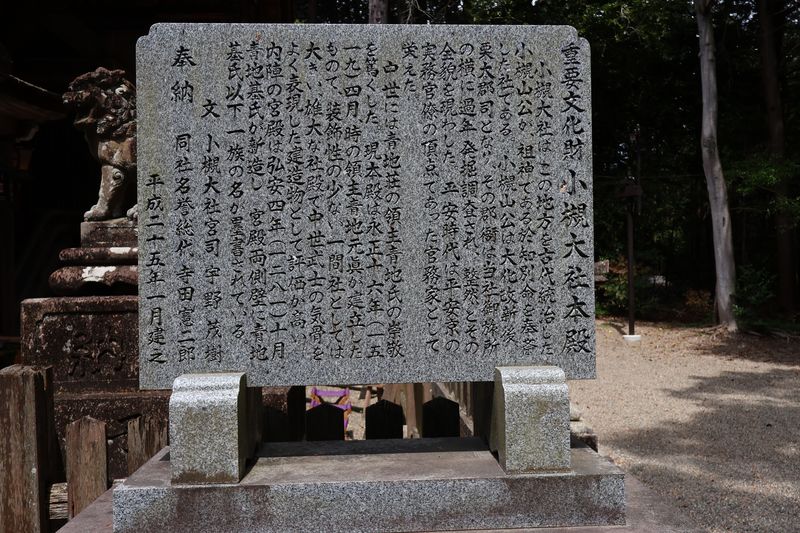 重要文化財 小槻大社本殿
小槻大社はこの地方を古代統治した
小槻山公が、祖神である於知別命を奉斎
した社である。小槻山公は大化改新後、
栗太郡司となり、その郡衙は当社御旅所
の横に過年、発掘調査され、整然とその
全貌を現わした。平安時代は平安京の
官務官僚の頂点であった官務家として
栄えた。
中世には青地荘の領主青地氏の崇敬
を篤くした。現本殿は永正十六年(一五
一九)四月、時の領主青地元真が建立した
もので、装飾性の少ない一間社としては
大きい、雄大な社殿で中世武士の気骨を
よく表現した建造物として評価が高い。
内陣の宮殿は弘安四年(一二八一)十月
青地基氏が新造し、宮殿両側壁に青地
基氏以下一族の名が墨書されている。
文 小槻大社宮司 宇野茂樹
奉納 同社名誉総代 幸田憲二郎
平成二十五年一月建之